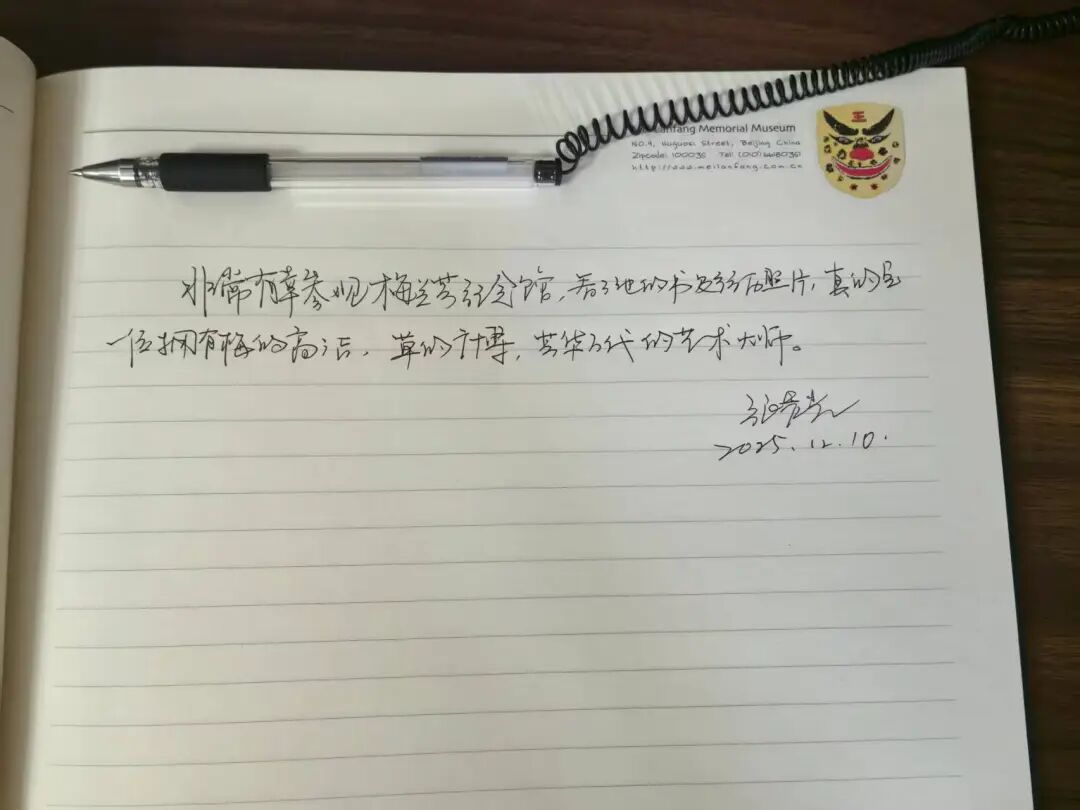 Lanfang Memorial Museum
NO.9, Huguosi Street, Beijing China
Zipcode: 100035 Tel: (010)66180351
http://www.meilanfang.com.cn
王
非常有幸参观梅兰芳纪念馆,看了他的书及经历照片,真的是
一位拥有梅的高洁,草的广博,芳华万代的艺术大师。
2025.12.10.